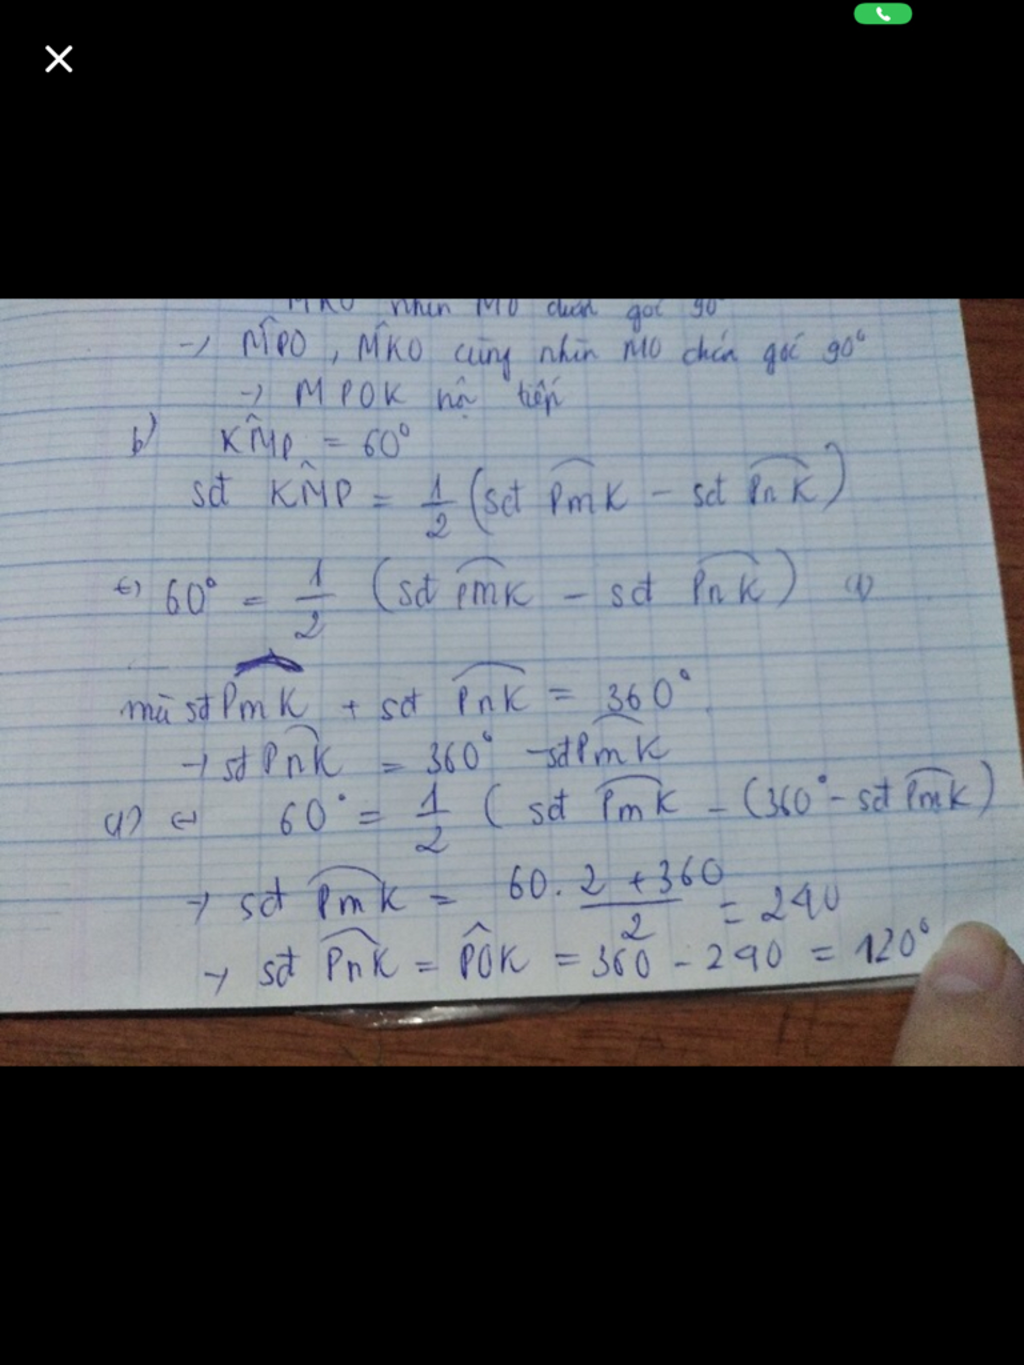 MKO nhìn MO dưới góc 90°
→ M̂PO, M̂KO cùng nhìn MO chắn góc 90°
→ MPOK nội tiếp
b) KM̂P = 60°
sđ KM̂P = 1/2 (sđ PmK - sđ PnK)
⇔ 60° = 1/2 (sđ PmK - sđ PnK) (1)
mà sđ PmK + sđ PnK = 360°
→ sđ PnK = 360° - sđ PmK
(1) ⇔ 60° = 1/2 (sđ PmK - (360° - sđ PmK)
→ sđ PmK = 60. 2 + 360 / 2 = 240
→ sđ PnK = PÔK = 360 - 240 = 120°